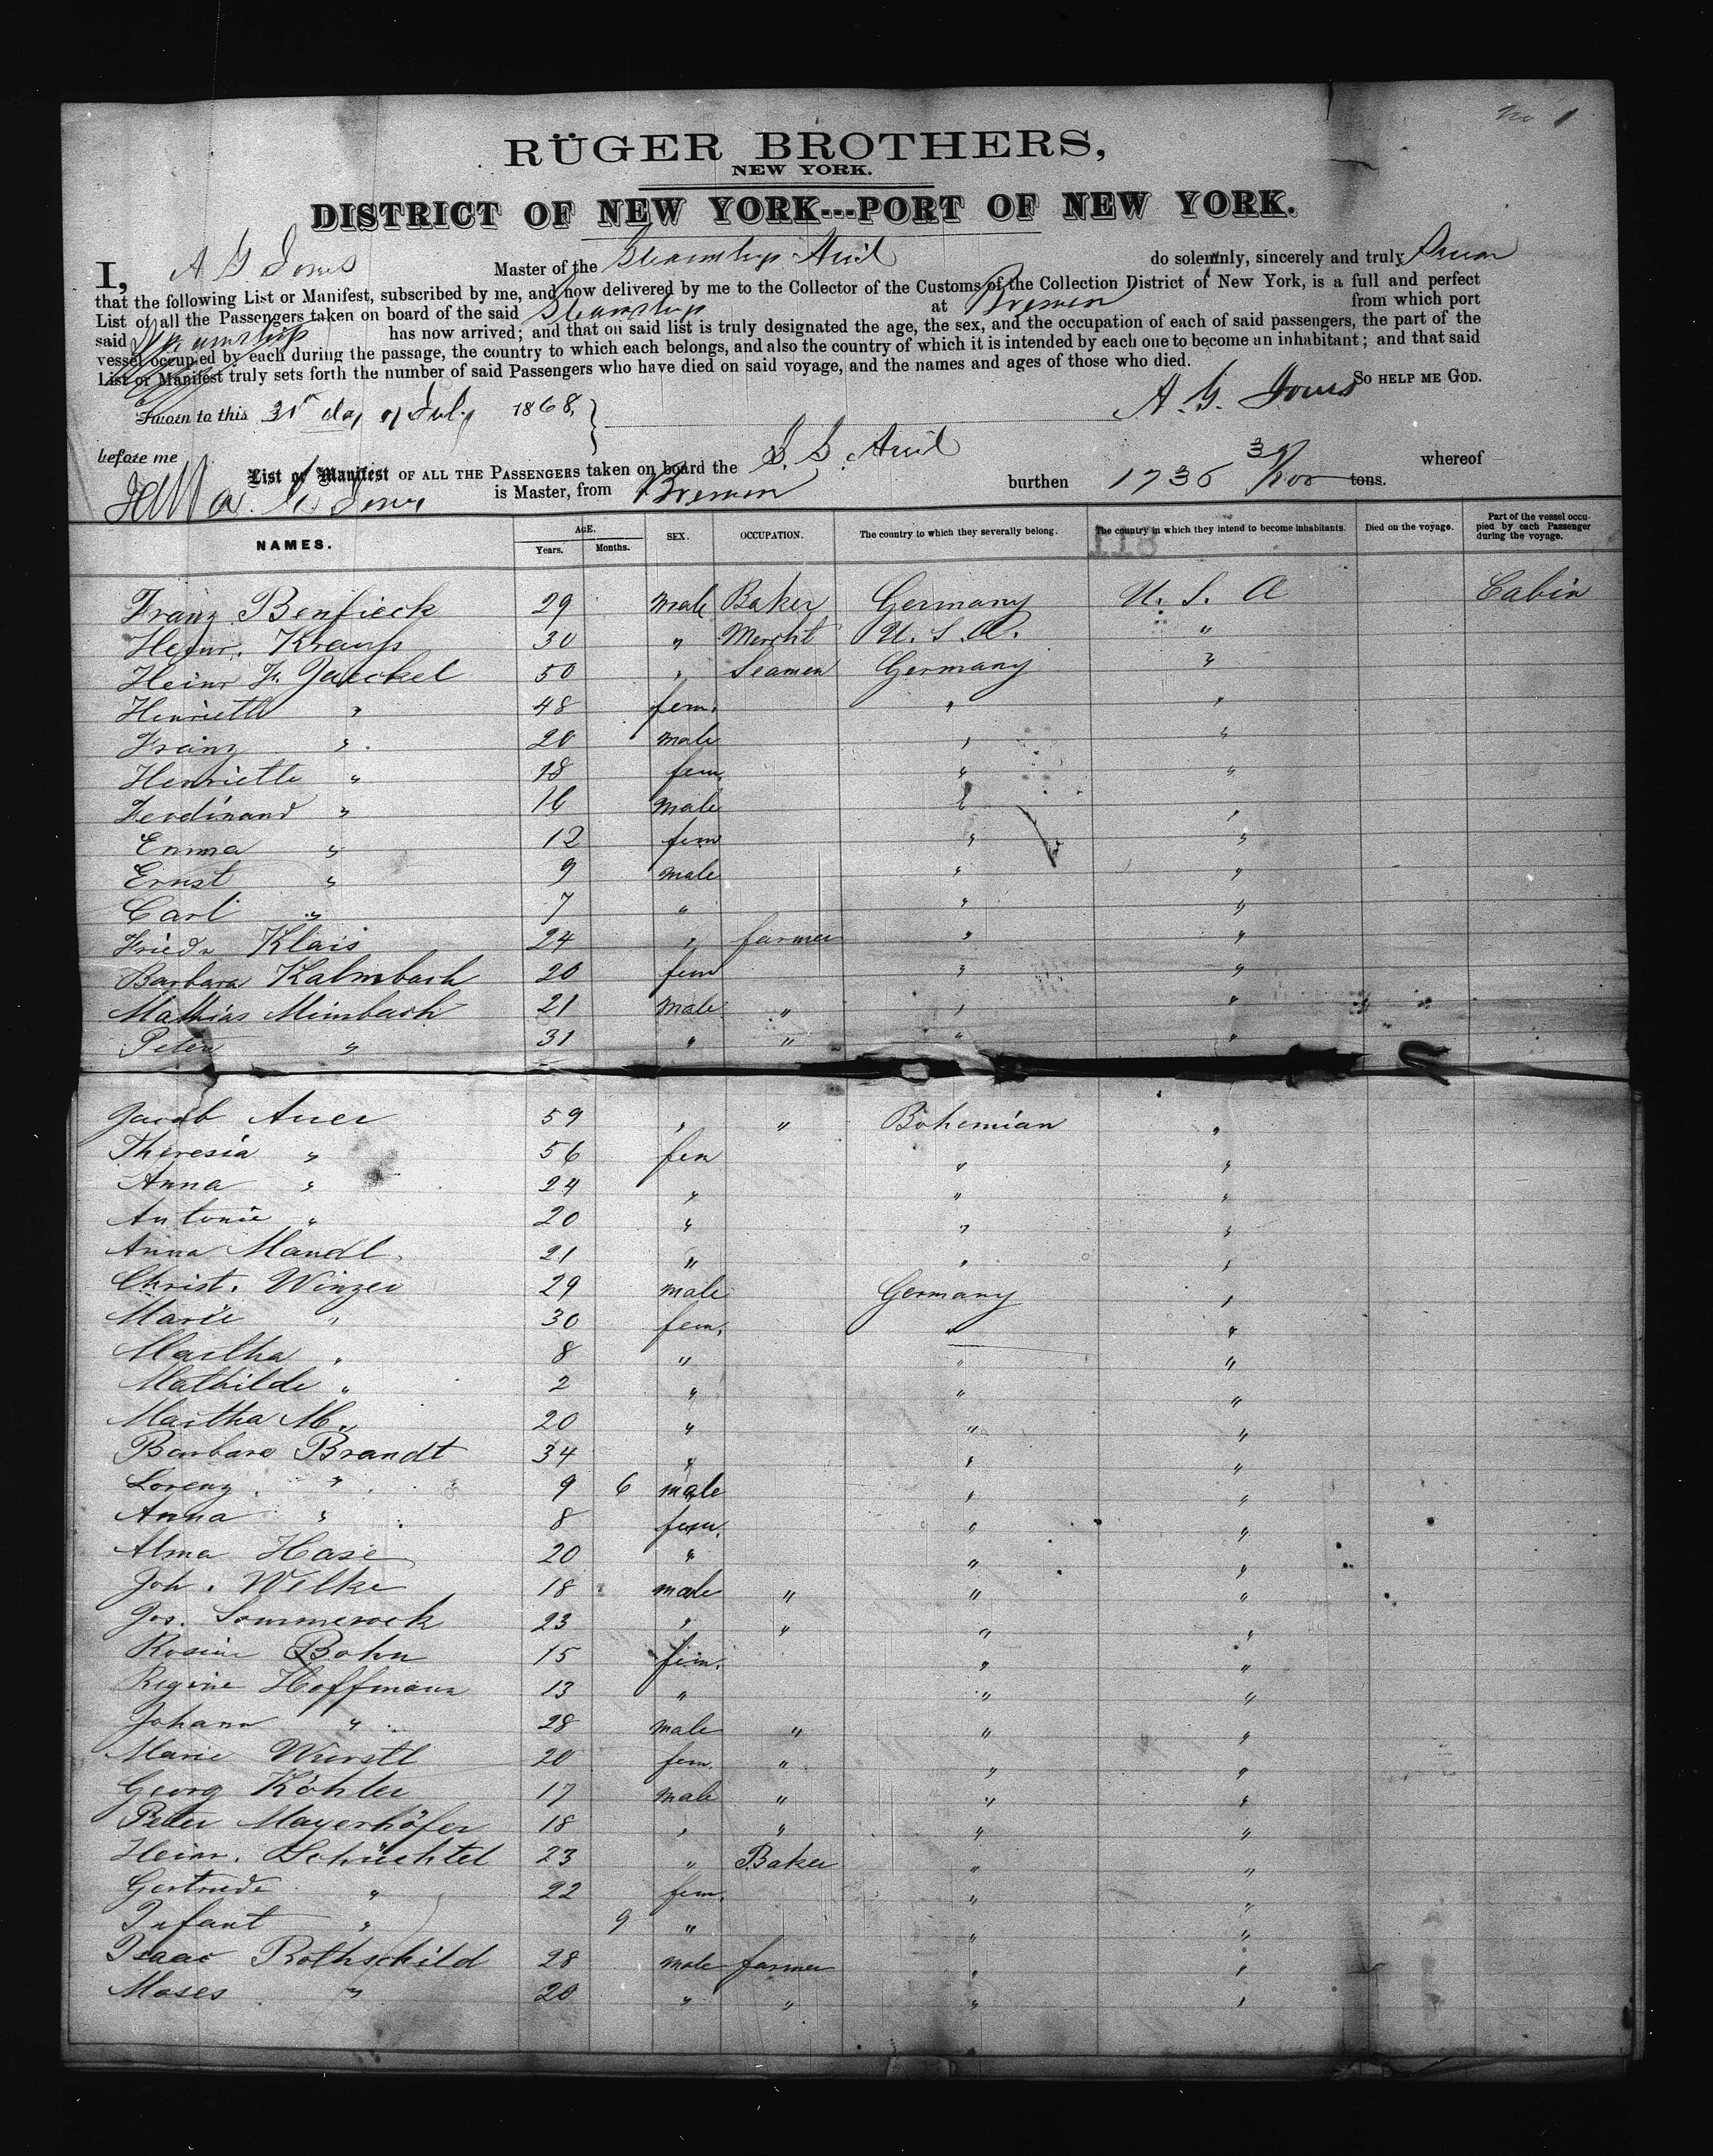 No 1
RÜGER BROTHERS,
NEW YORK.
DISTRICT OF NEW YORK---PORT OF NEW YORK.
I, A G Jones Master of the Steamship Ariel do solemnly, sincerely and truly swear
that the following List or Manifest, subscribed by me, and now delivered by me to the Collector of the Customs of the Collection District of New York, is a full and perfect
List of all the Passengers taken on board of the said Steamship at Bremen from which port
said Steamship has now arrived; and that on said list is truly designated the age, the sex, and the occupation of each of said passengers, the part of the
vessel occupied by each during the passage, the country to which each belongs, and also the country of which it is intended by each one to become an inhabitant; and that said
List or Manifest truly sets forth the number of said Passengers who have died on said voyage, and the names and ages of those who died.
SO HELP ME GOD.
Sworn to this 31st day of July 1868, A. G. Jones
before me
List or Manifest OF ALL THE PASSENGERS taken on board the S. S. Ariel whereof
A. G. Jones is Master, from Bremen burthen 1736 tons.
NAMES. AGE. Years. Months. SEX. OCCUPATION. The country to which they severally belong. The country in which they intend to become inhabitants. Died on the voyage. Part of the vessel occupied by each Passenger during the voyage.
118
Franz Benfieck 29 male Baker Germany U. S. A Cabin
Heinr. Krauss 30 " Mercht U. S. A. "
Heinr F. Jaeckel 50 " Seamen Germany "
Henriette " 48 fem. " "
Franz " 20 male " "
Henriette " 18 fem. " "
Ferdinand " 16 male " "
Emma " 12 fem " "
Ernst " 9 male " "
Carl " 7 " " "
Friedr Klais 24 " farmer " "
Barbara Kalmbach 20 fem " "
Mathias Mimbach 21 male " " "
Peter " 31 " " " "
Jacob Auer 59 " " Bohemian "
Theresia " 56 fem " "
Anna " 24 " " "
Antonie " 20 " " "
Anna Mandl 21 " " "
Christ. Winzer 29 male Germany "
Marie " 30 fem. " "
Martha " 8 " " "
Mathilde " 2 " " "
Martha M. 20 " " "
Barbara Brandt 34 " " "
Lorenz " 9 6 male " "
Anna " 8 fem. " "
Alma Hase 20 " " "
Joh. Wilke 18 male " " "
Jos. Sommerock 23 " " " "
Rosine Bohn 15 fem. " "
Regine Hoffmann 13 " " "
Johann " 28 male " " "
Marie Wurstl 20 fem. " " "
Georg Köhler 17 male " " "
Peter Mayerhöfer 18 " " " "
Heinr. Schüchtel 23 " Baker " "
Gertrude " 22 fem. " "
Infant " 9 " " "
Isaac Rothschild 28 male farmer " "
Moses " 20 " " " "